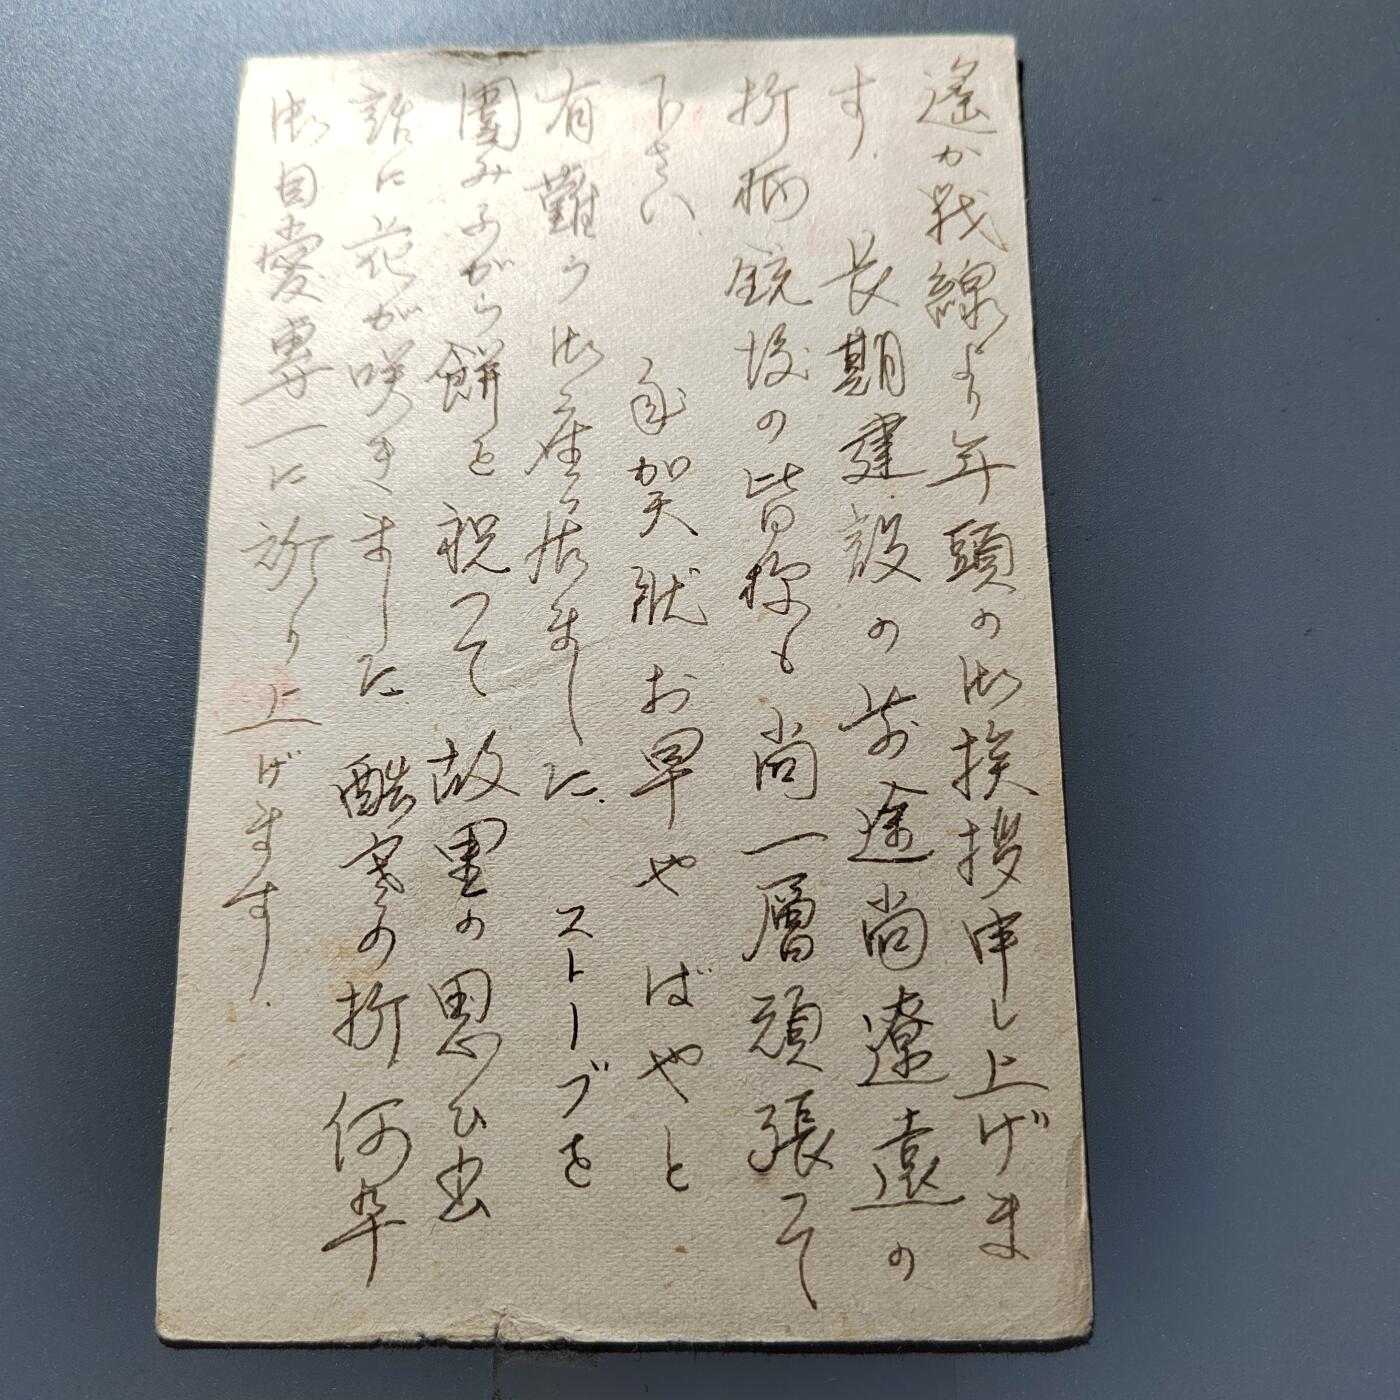 遙か戦線より年頭の御挨拶申し上げま
す 長期建設の前途尚遼遠の
折柄銃後の皆様も尚一層頑張って
下さい 年賀状お早やばやと
有難う御座居ました ストーブを
囲み子がら餅を祝って故里の思ひ出
話に花が咲きました 酷寒の折何卒
御自愛専一に祈り上げます